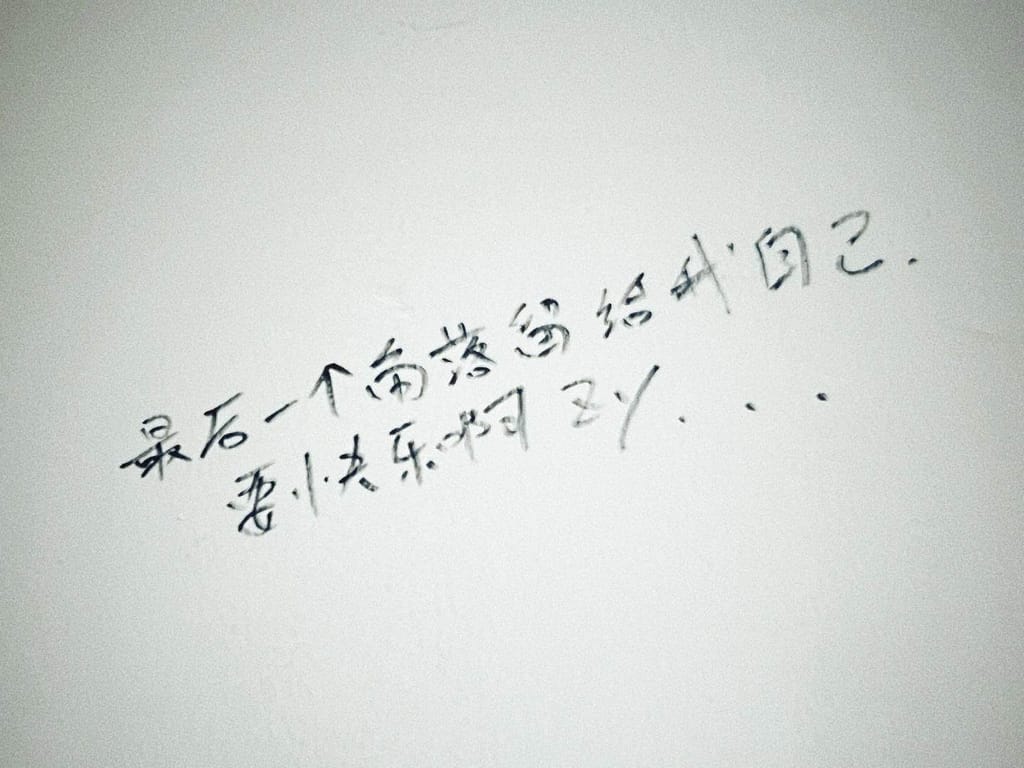 最后一个角落留给我自己.
要快乐啊 zy...